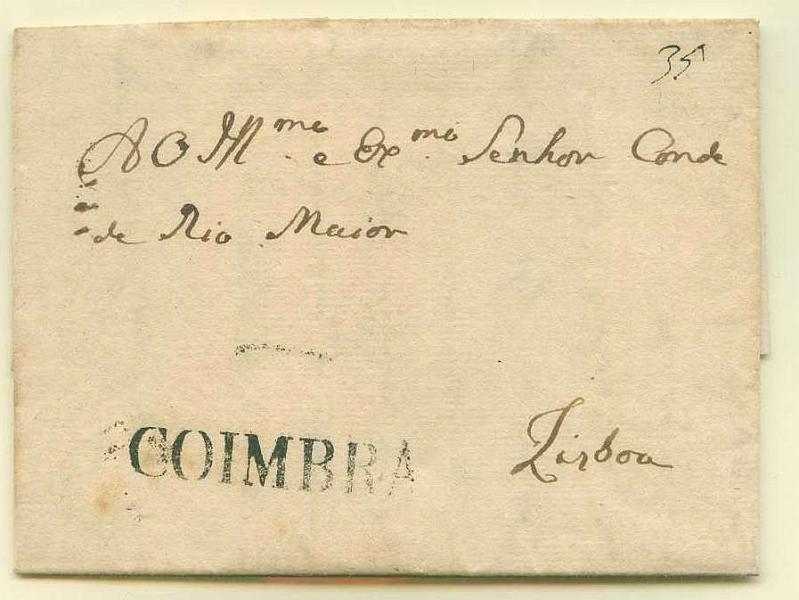 35
AO Ill.mo e Ex.mo Senhor Conde
de Rio Maior
COIMBRA
Lisboa